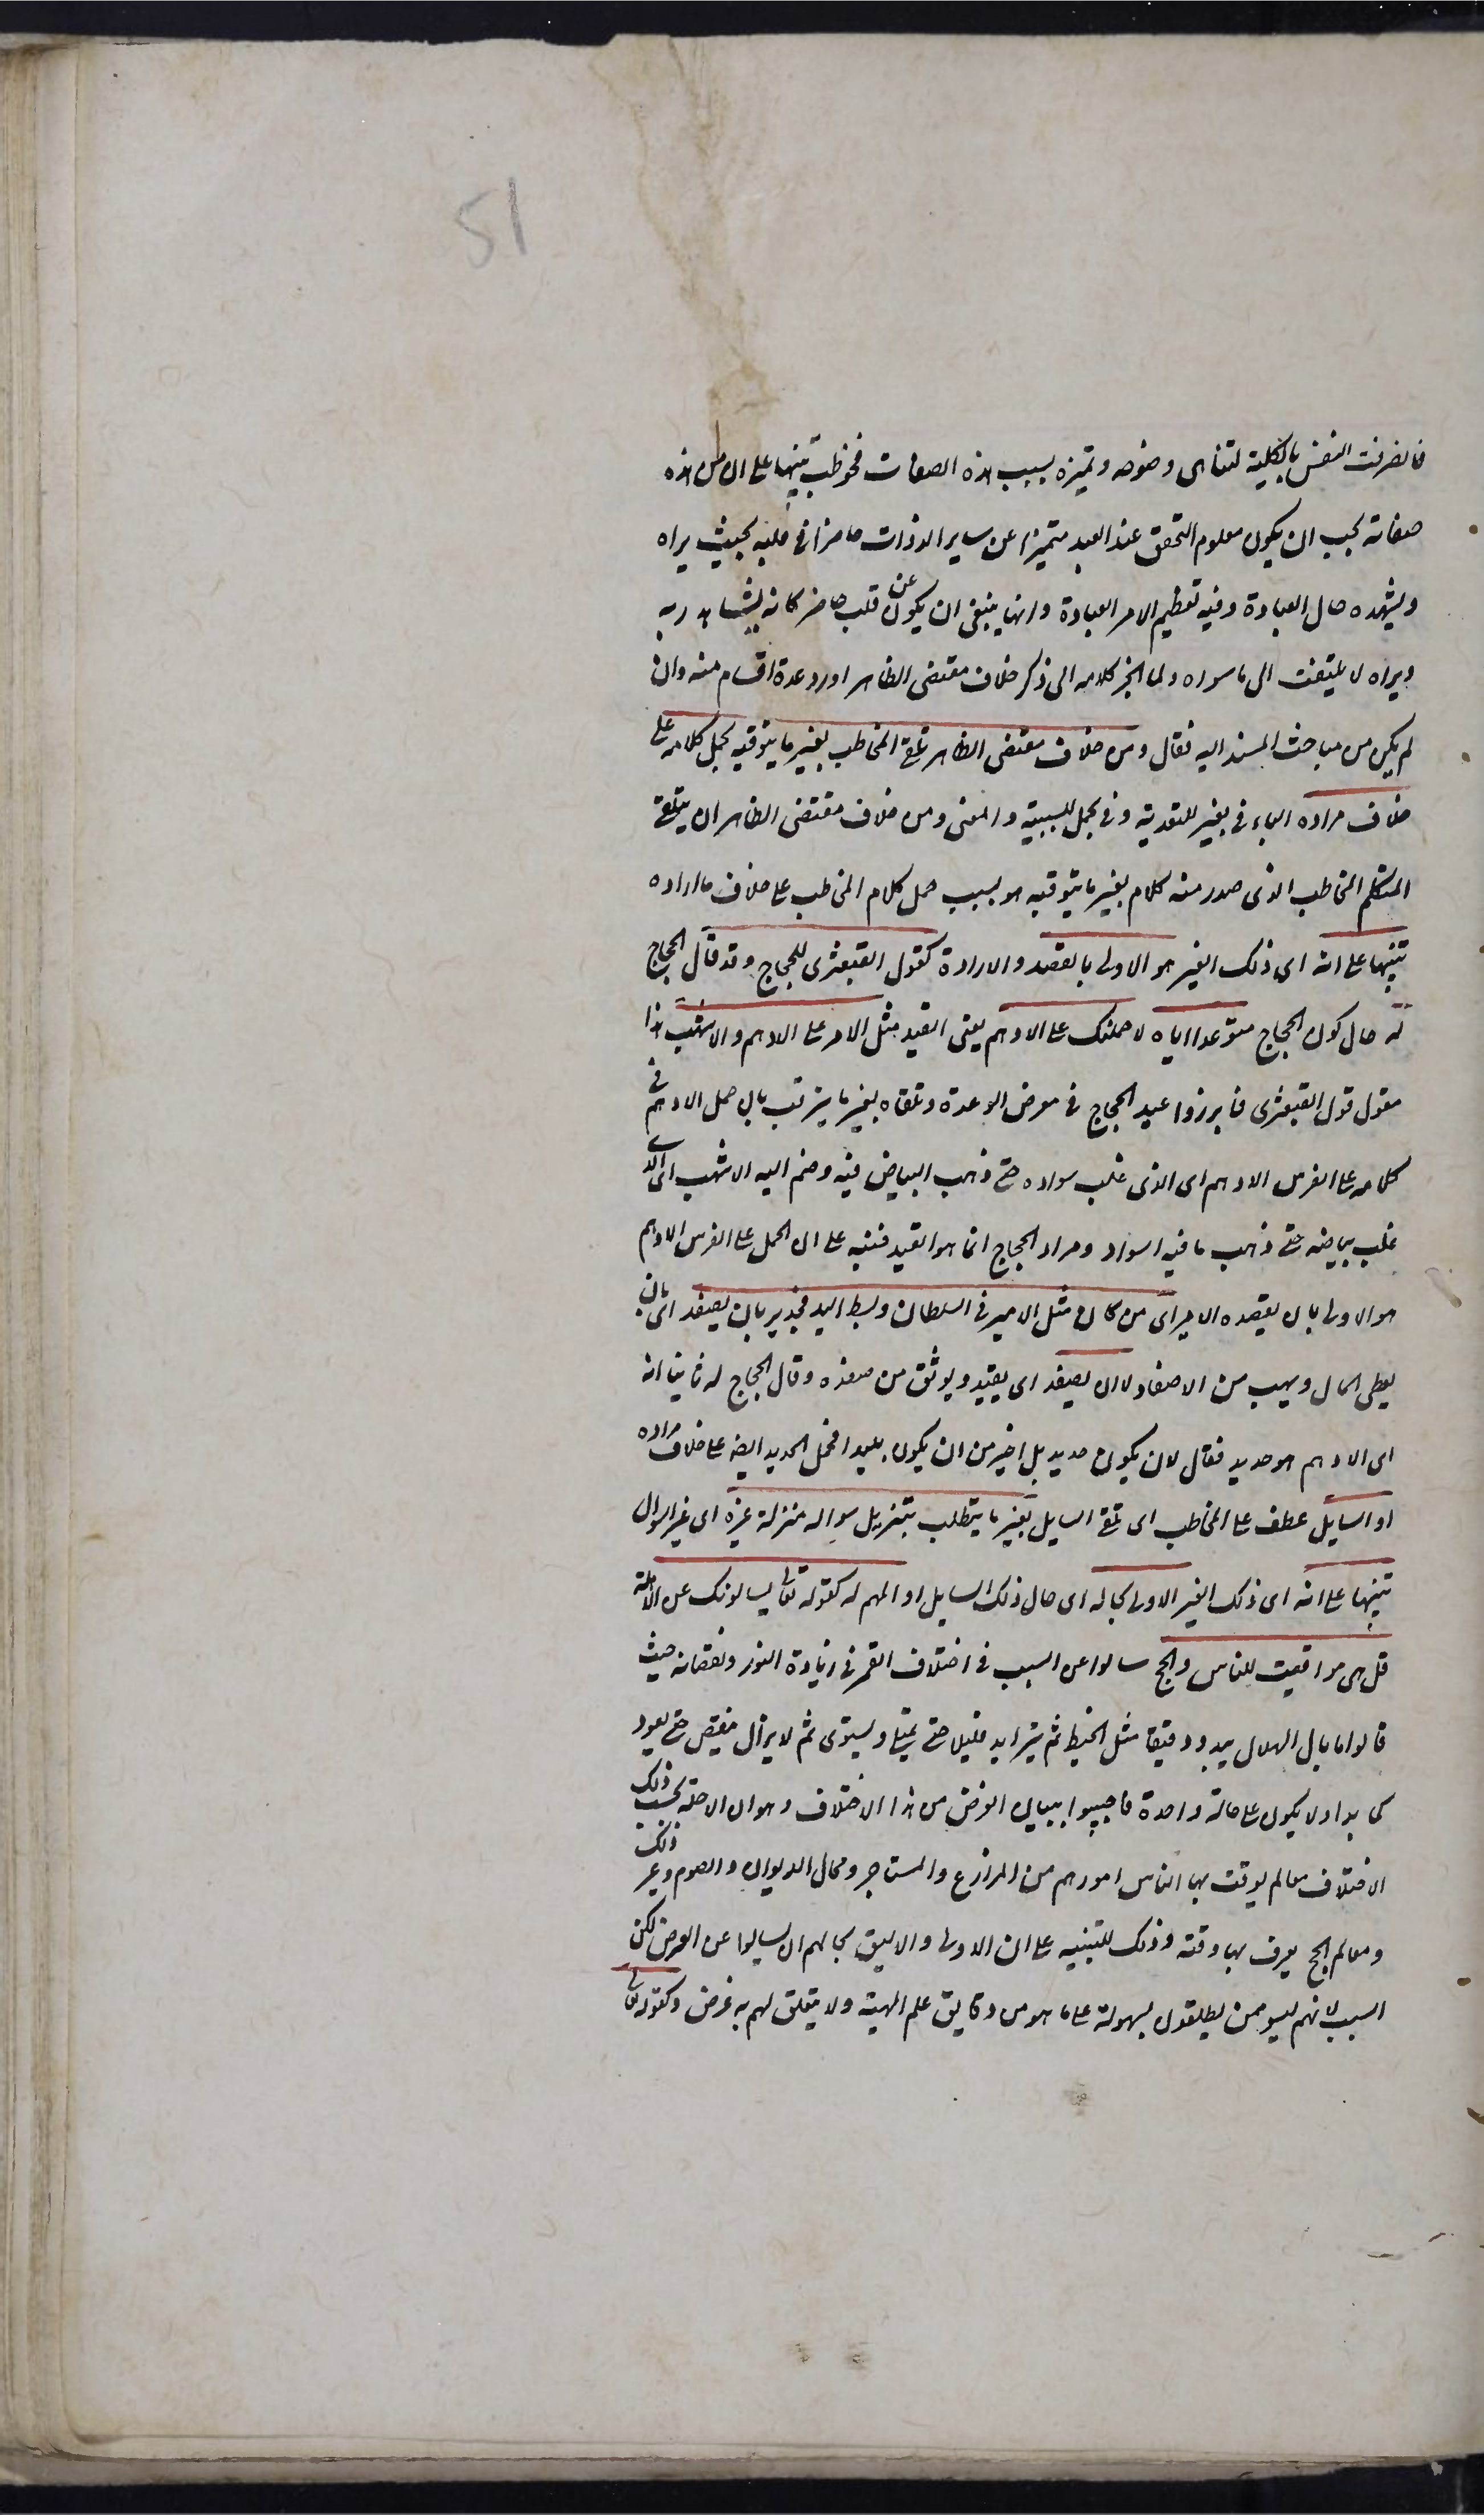 51
فانصرفت النفس بالكلية لتناهى وضوحه وتميزه بسبب هذه الصفات فخوطب تنبيها على ان من هذه
صفاته يجب ان يكون معلوم التحقق عند العبد متميزا عن ساير الذوات حاضرا فى قلبه بحيث يراه
ويشهده حال العبادة وفيه تعظيم الامر العبادة وانها ينبغى ان يكون عن قلب حاضر كانه يشاهد ربه
ويراه لا يلتفت الى ما سواه ولما انجر كلامه الى ذكر خلاف مقتضى الظاهر اورد عدة اقسام منه وان
لم يكن من مباحث المسند اليه فقال ومن خلاف مقتضى الظاهر تلقى المخاطب بغير ما يتوقبه بحمل كلامه على
خلاف مراده الباء فى بغير للتعدية وفى بحمل للسببية والمعنى ومن خلاف مقتضى الظاهر ان يتلقى
المتكلم المخاطب الذى صدر منه كلام بغير ما يتوقبه هو بسبب حمل كلام المخاطب على خلاف ما اراده
تنبيها على انه اى ذلك الغير هو الاولى بالقصد والارادة كقول القبعثرى للحجاج وقد قال الحجاج
له حال كون الحجاج متوعدا اياه لاحملنك على الادهم يعنى القيد مثل الامر على الادهم والاشهب هذا
مقول قول القبعثرى فابرز وعيد الحجاج فى معرض الوعدة وتلقاه بغير ما يترتب بان حمل الادهم فى
كلامه على الفرس الادهم اى الذى غلب سواده حتى ذهب البياض فيه وضم اليه الاشهب اى الذى
غلب بياضه حتى ذهب ما فيه اسواد ومراد الحجاج انما هو القيد فنبه على ان الحمل على الفرس الادهم
هو الاولى بان يقصده الامير اى من كان مثل الامير فى السلطان وبسط اليد فجدير بان يصفد اى بان
يعطى المال ويهب من الاصفاد لا ان يصفد اى يقيد ويوثق من صفده وقال الحجاج له ثانيا انه
اى الادهم هو حديد فقال لان يكون حديد بل اخير من ان يكون بليدا فحمل الحديد ايضه على خلاف مراده
او السايل عطف على المخاطب اى تلقى السايل بغير ما يتطلب بتنزيل سواله منزلة غيره اى غير السوال
تنبيها على انه اى ذلك الغير الاولى بحاله اى حال ذلك السايل او المهم له كقوله تعالى يسالونك عن الاهلة
قل هى مواقيت للناس والحج سالوا عن السبب فى اختلاف القمر فى زيادة النور ونقصانه حيث
قالوا ما بال الهلال يبدو دقيقا مثل الخيط ثم يتزايد قليلا حتى يمتلى ويستوى ثم لا يزال ينقص حتى يعود
كما بدا ولا يكون على حالة واحدة فاجيبوا ببيان الغرض من هذا الاختلاف وهو ان الاهلة بحسب ذلك
الاختلاف معالم يوقت بها الناس امورهم من المزارع والمتاجر ومحال الديون والصوم وغير ذلك
ومعالم الحج يعرف بها وقته وذلك للتنبيه على ان الاولى والاليق بحالهم ان يسالوا عن الغرض لكن
السبب لانهم ليسو ممن يطلعون بسهولة على ما هو من دقايق علم الهيئة ولا يتعلق لهم به غرض وكقوله تعالى